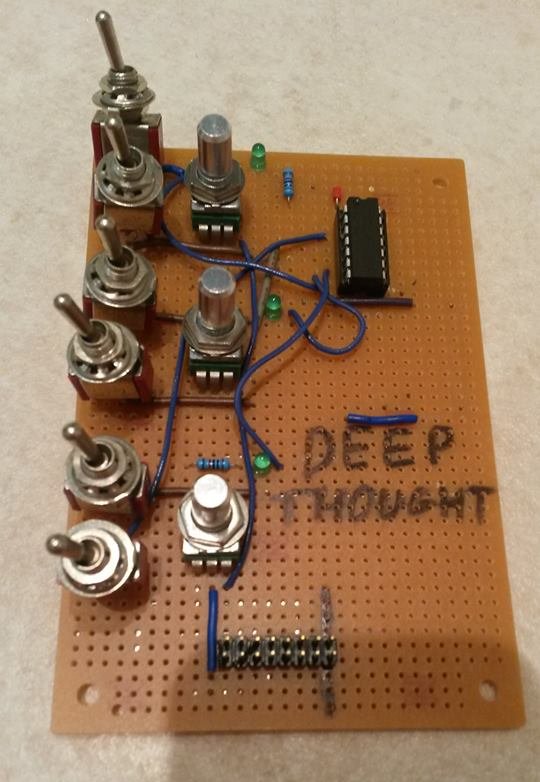 DEEP
THOUGHT